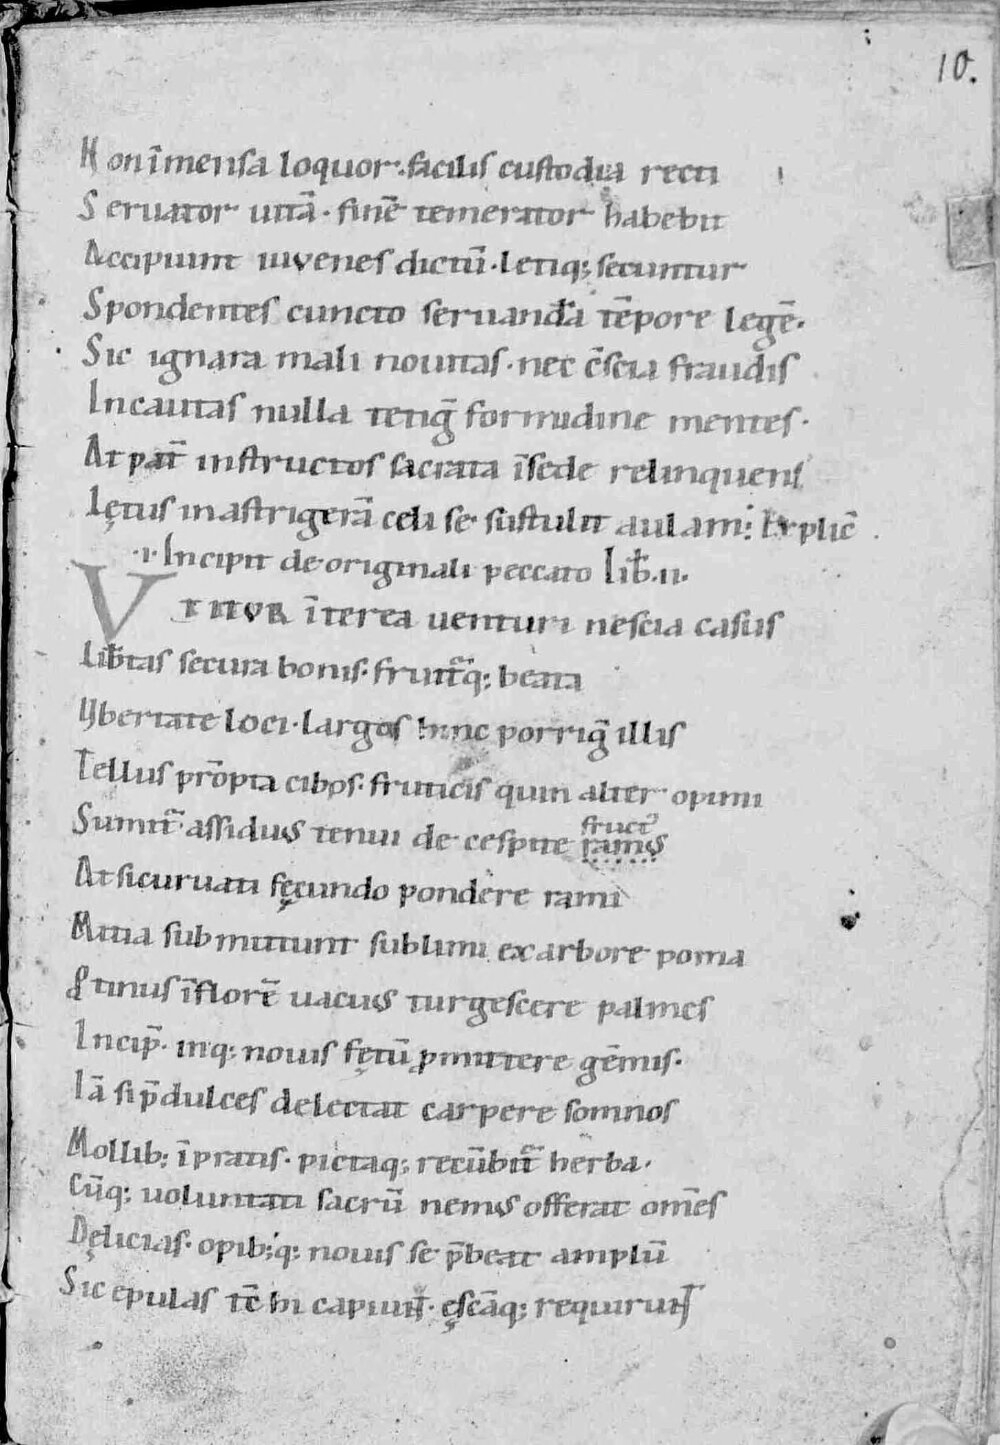 10.
Non īmensa loquor. facilis custodia recti
Seruator uitā. finē temerator habebit
Accipiunt iuvenes dictū. letiq; secuntur
Spondentes cuncto seruandā tēpore legē.
Sic ignara mali nouitas. nec c̄scia fraudis
Incautas nulla tetiḡ formidine mentes.
At pat̄ instructos sacrata īsede relinquens
Lętus in astrigerā celi se sustulit aulam; Explic̄
.i. Incipit de originali peccato Lib̄.ii.
VTITVR īterea uenturi nescia casus
Lib̄tas secura bonis. fruit᷑q; beata
Vbertate loci. largos hinc porriḡ illis
Tellus prōpta cibos. fruticis quin alter opimi
Sumit᷑ assiduus tenui de cespite ramus
fruct᷒
At si curuati fęcundo pondere rami
Mitia submittunt sublimi ex arbore poma
Ꝓtinus īflorē uacuus turgescere palmes
Incip̄. inq; nouis fętū ꝓmittere gēmis.
Iā si p̄dulces delectat carpere somnos
Mollib; īpratis. pictaq; recūbit᷑ herba.
Cūq; uoluntati sacrū nemus offerat om̄es
Dęlicias. opib;q; nouis se p̄beat amplū
Sic epulas tc̄ hi capiunt. ęscāq; requirunt